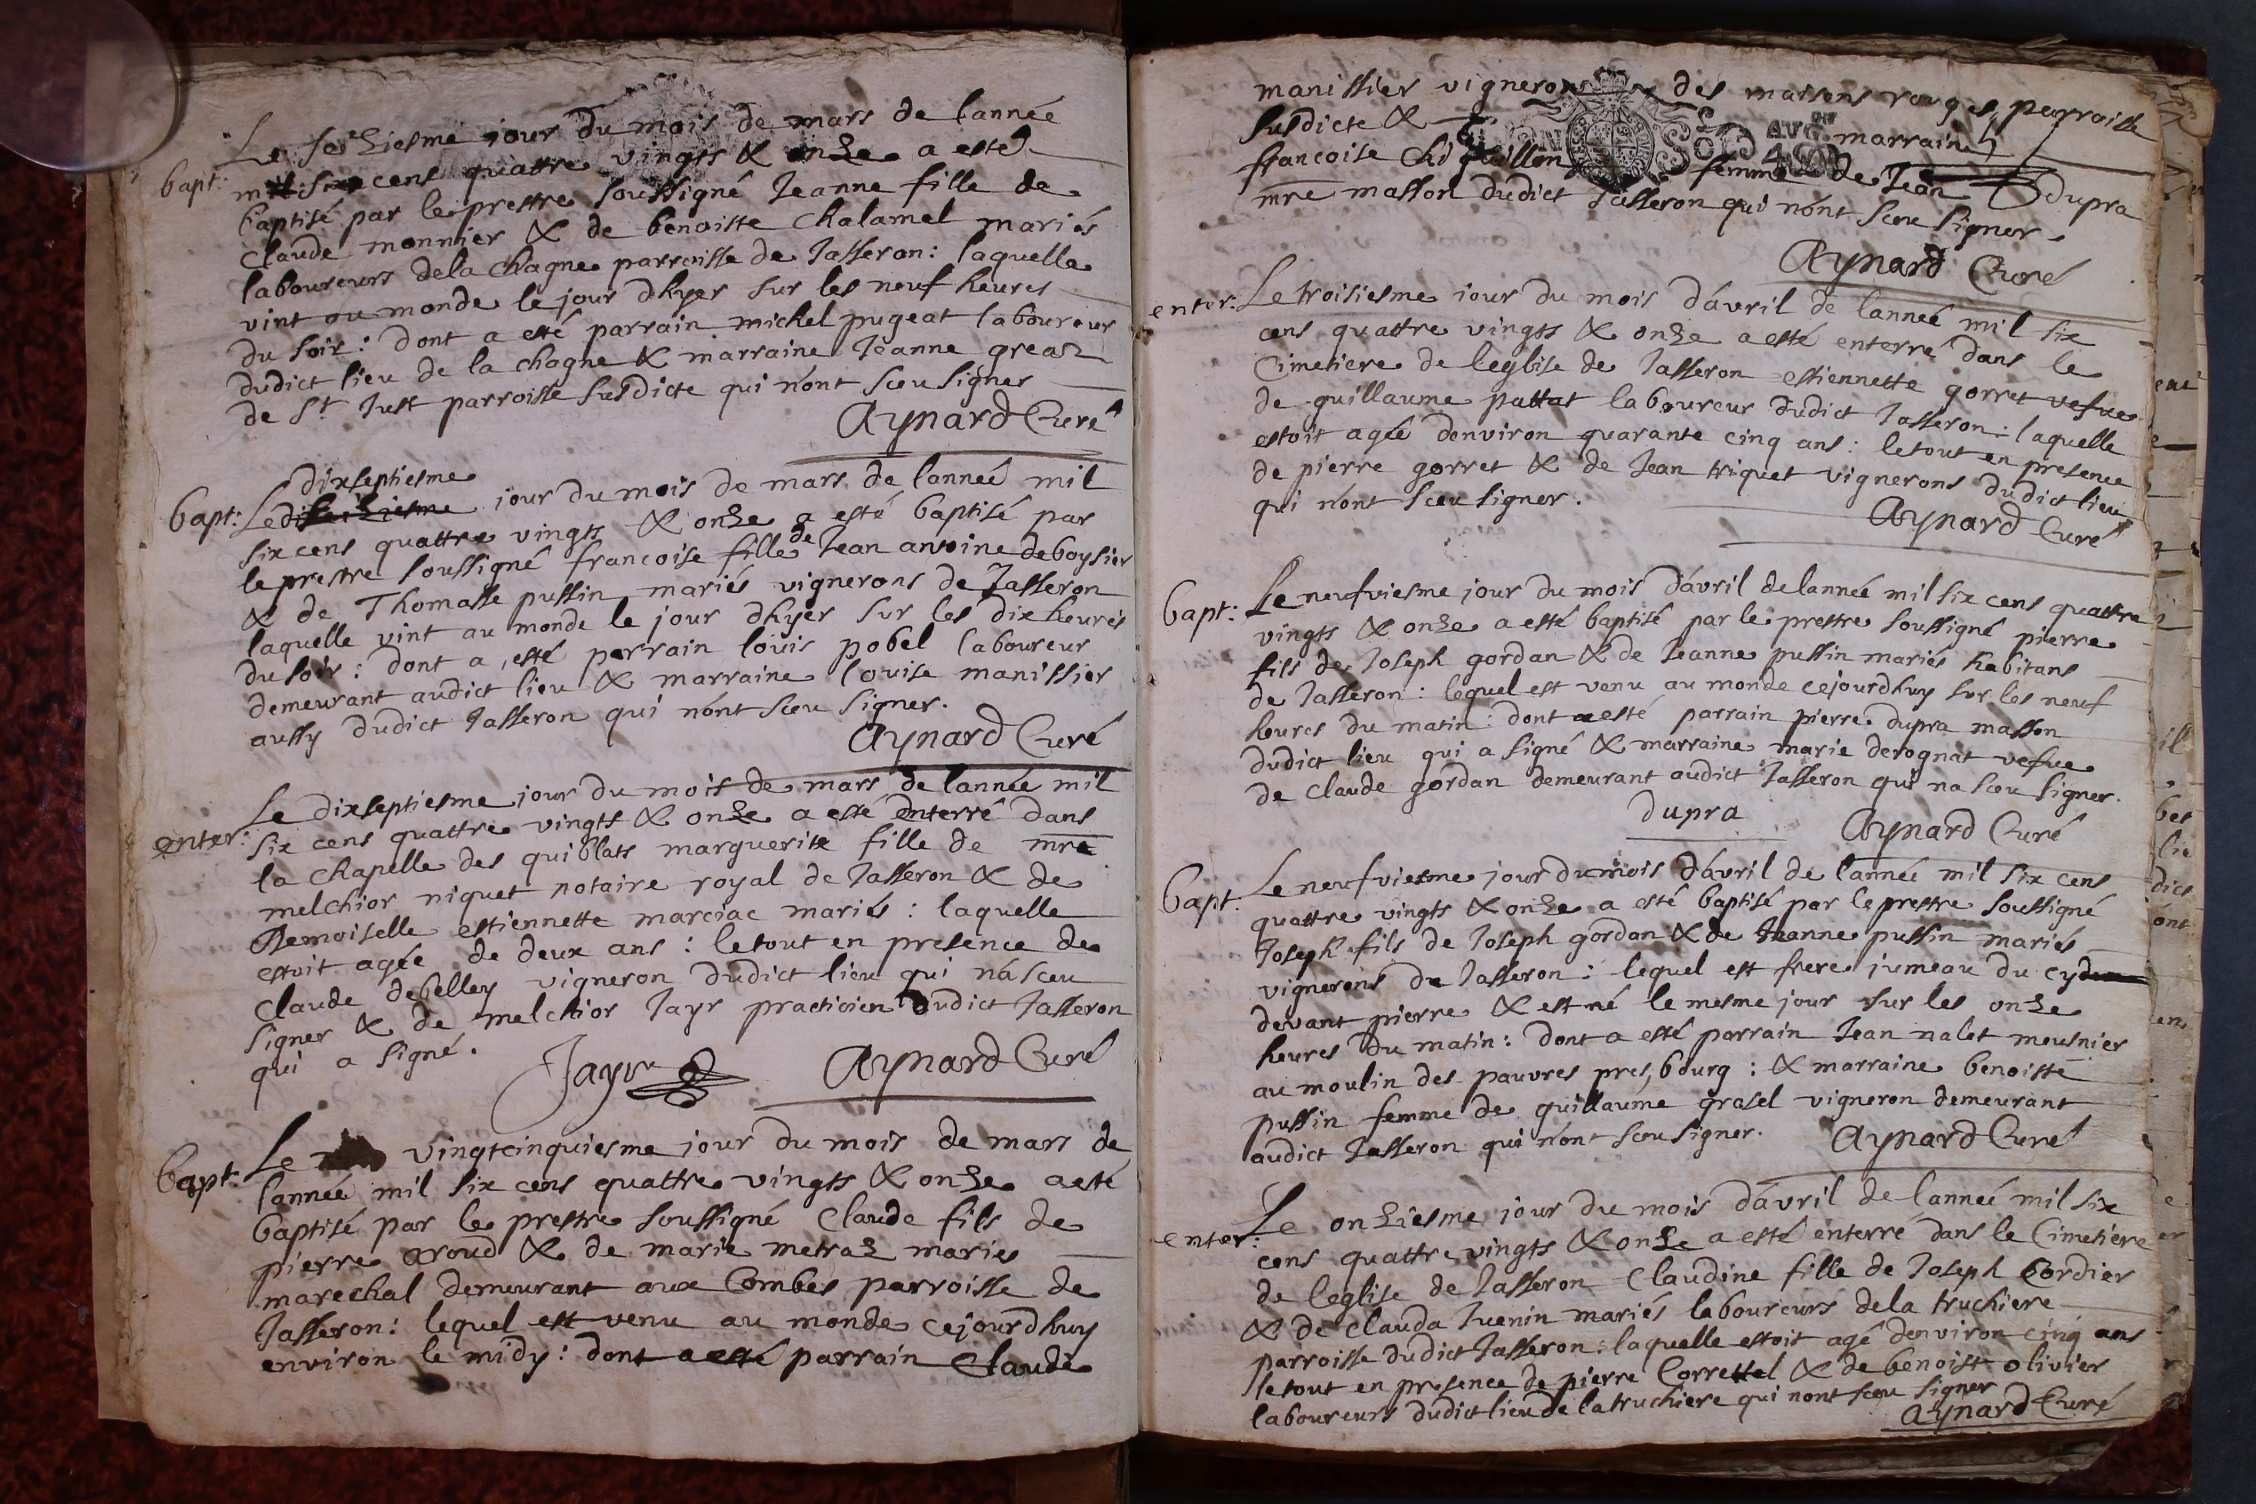 bapt: Le seiziesme jour du mois de mars de lannée
mil six cens quattre vingts & onze a esté
baptisé par le prestre soussigné Jeanne fille de
claude monnier & de benoiste Chalamel mariés
laboureurs dela Chagne parroisse de Jasseron: laquelle
vint au monde le jour dhyer sur les neuf heures
du soir: dont a esté parrain michel pugeat laboureur
dudict lieu de la chagne & marraine Jeanne greaz
de St Just parroisse susdicte qui n'ont sceu signer
Aynard Curé
dixseptiesme
bapt: Le jour du mois de mars de lanneé mil
six cens quattre vingts & onze a esté baptisé par
le prestre soussigné francoise fille de Jean antoine deboysier
& de Thomasse pussin mariés vignerons de Jasseron
laquelle vint au monde le jour dhyer sur les dix heures
du soir: dont a esté parrain louis pobel laboureur
demeurant audict lieu & marraine louise manissier
aussy dudict Jasseron qui n'ont sceu signer.
Aynard Curé
Le dixseptiesme jour du mois de mars de lannée mil
enter: six cens quattre vingts & onze a esté enterré dans
la chapelle des quiblats marguerite fille de mre
melchior niquet notaire royal de Jasseron & de
Demoiselle estiennette marciac mariés: laquelle
estoit agée de deux ans: letout en presence de
claude debelley vigneron dudict lieu qui n'a sceu
signer & de melchior Jayr practicien dudict Jasseron
qui a signé.
Jayr Aynard Curé
bapt: Le vingtcinquiesme jour du mois de mars de
lanneé mil six cens quattre vingts & onze a esté
baptisé par le prestre soussigné Claude fils de
pierre aroud & de marie metraz mariés
marechal demeurant aux Combes parroisse de
Jasseron: lequel est venu au monde cejourdhuy
environ le midy: dont a esté parrain Claude
manissier vigneron des maisons rouges parroisse
susdicte & marraine
francoise femme de Jean dupra
mre masson dudict Jasseron qui n'ont sceu signer.
Aynard Curé
enter: Le troisiesme jour du mois d'avril de lanneé mil six
cens quattre vingts & onze a esté enterré dans le
Cimetiere de leglise de Jasseron estiennette gorret vefve
de guillaume pattat laboureur dudict Jasseron: laquelle
estoit agéé denviron quarante cinq ans: letout en presence
de pierre gorret & de Jean triquet vignerons dudict lieu
qui n'ont sceu signer.
Aynard Curé
bapt: Le neufviesme jour du mois d'avril delanneé mil six cens quattre
vingts & onze a esté baptisé par le prestre soussigné pierre
fils de Joseph gordan & de Jeanne pussin mariés habitans
de Jasseron: lequel est venu au monde cejourdhuy sur les neuf
heures du matin: dont a esté parrain pierre dupra masson
dudict lieu qui a signé & marraine marie derognat vefve
de claude gordan demeurant audict Jasseron qui na sceu signer.
dupra Aynard Curé
bapt: Le neufviesme jour du mois d'avril de lanneé mil six cens
quattre vingts & onze a esté baptisé par le prestre soussigné
Joseph fils de Joseph gordan & de Jeanne pussin mariés
vignerons de Jasseron: lequel est frere jumeau du cy
devant pierre & est né le mesme jour sur les onze
heures du matin: dont a esté parrain Jean nalet meusnier
au moulin des pauvres pres bourg: & marraine benoiste
pussin femme de guillaume grasel vigneron demeurant
audict Jasseron qui n'ont sceu signer. Aynard Curé
Le onziesme jour du mois d'avril de lanneé mil six
enter: cens quattre vingts & onze a esté enterré dans le Cimetiere
de leglise de Jasseron Claudine fille de Joseph Cordier
& de clauda Juenin mariés laboureurs dela truchiere
parroisse dudict Jasseron: laquelle estoit agé denviron cinq ans
letout en presence de pierre Correttel & de benoist olivier
laboureurs dudict lieu de la truchiere qui nont sceu signer
Aynard Curé